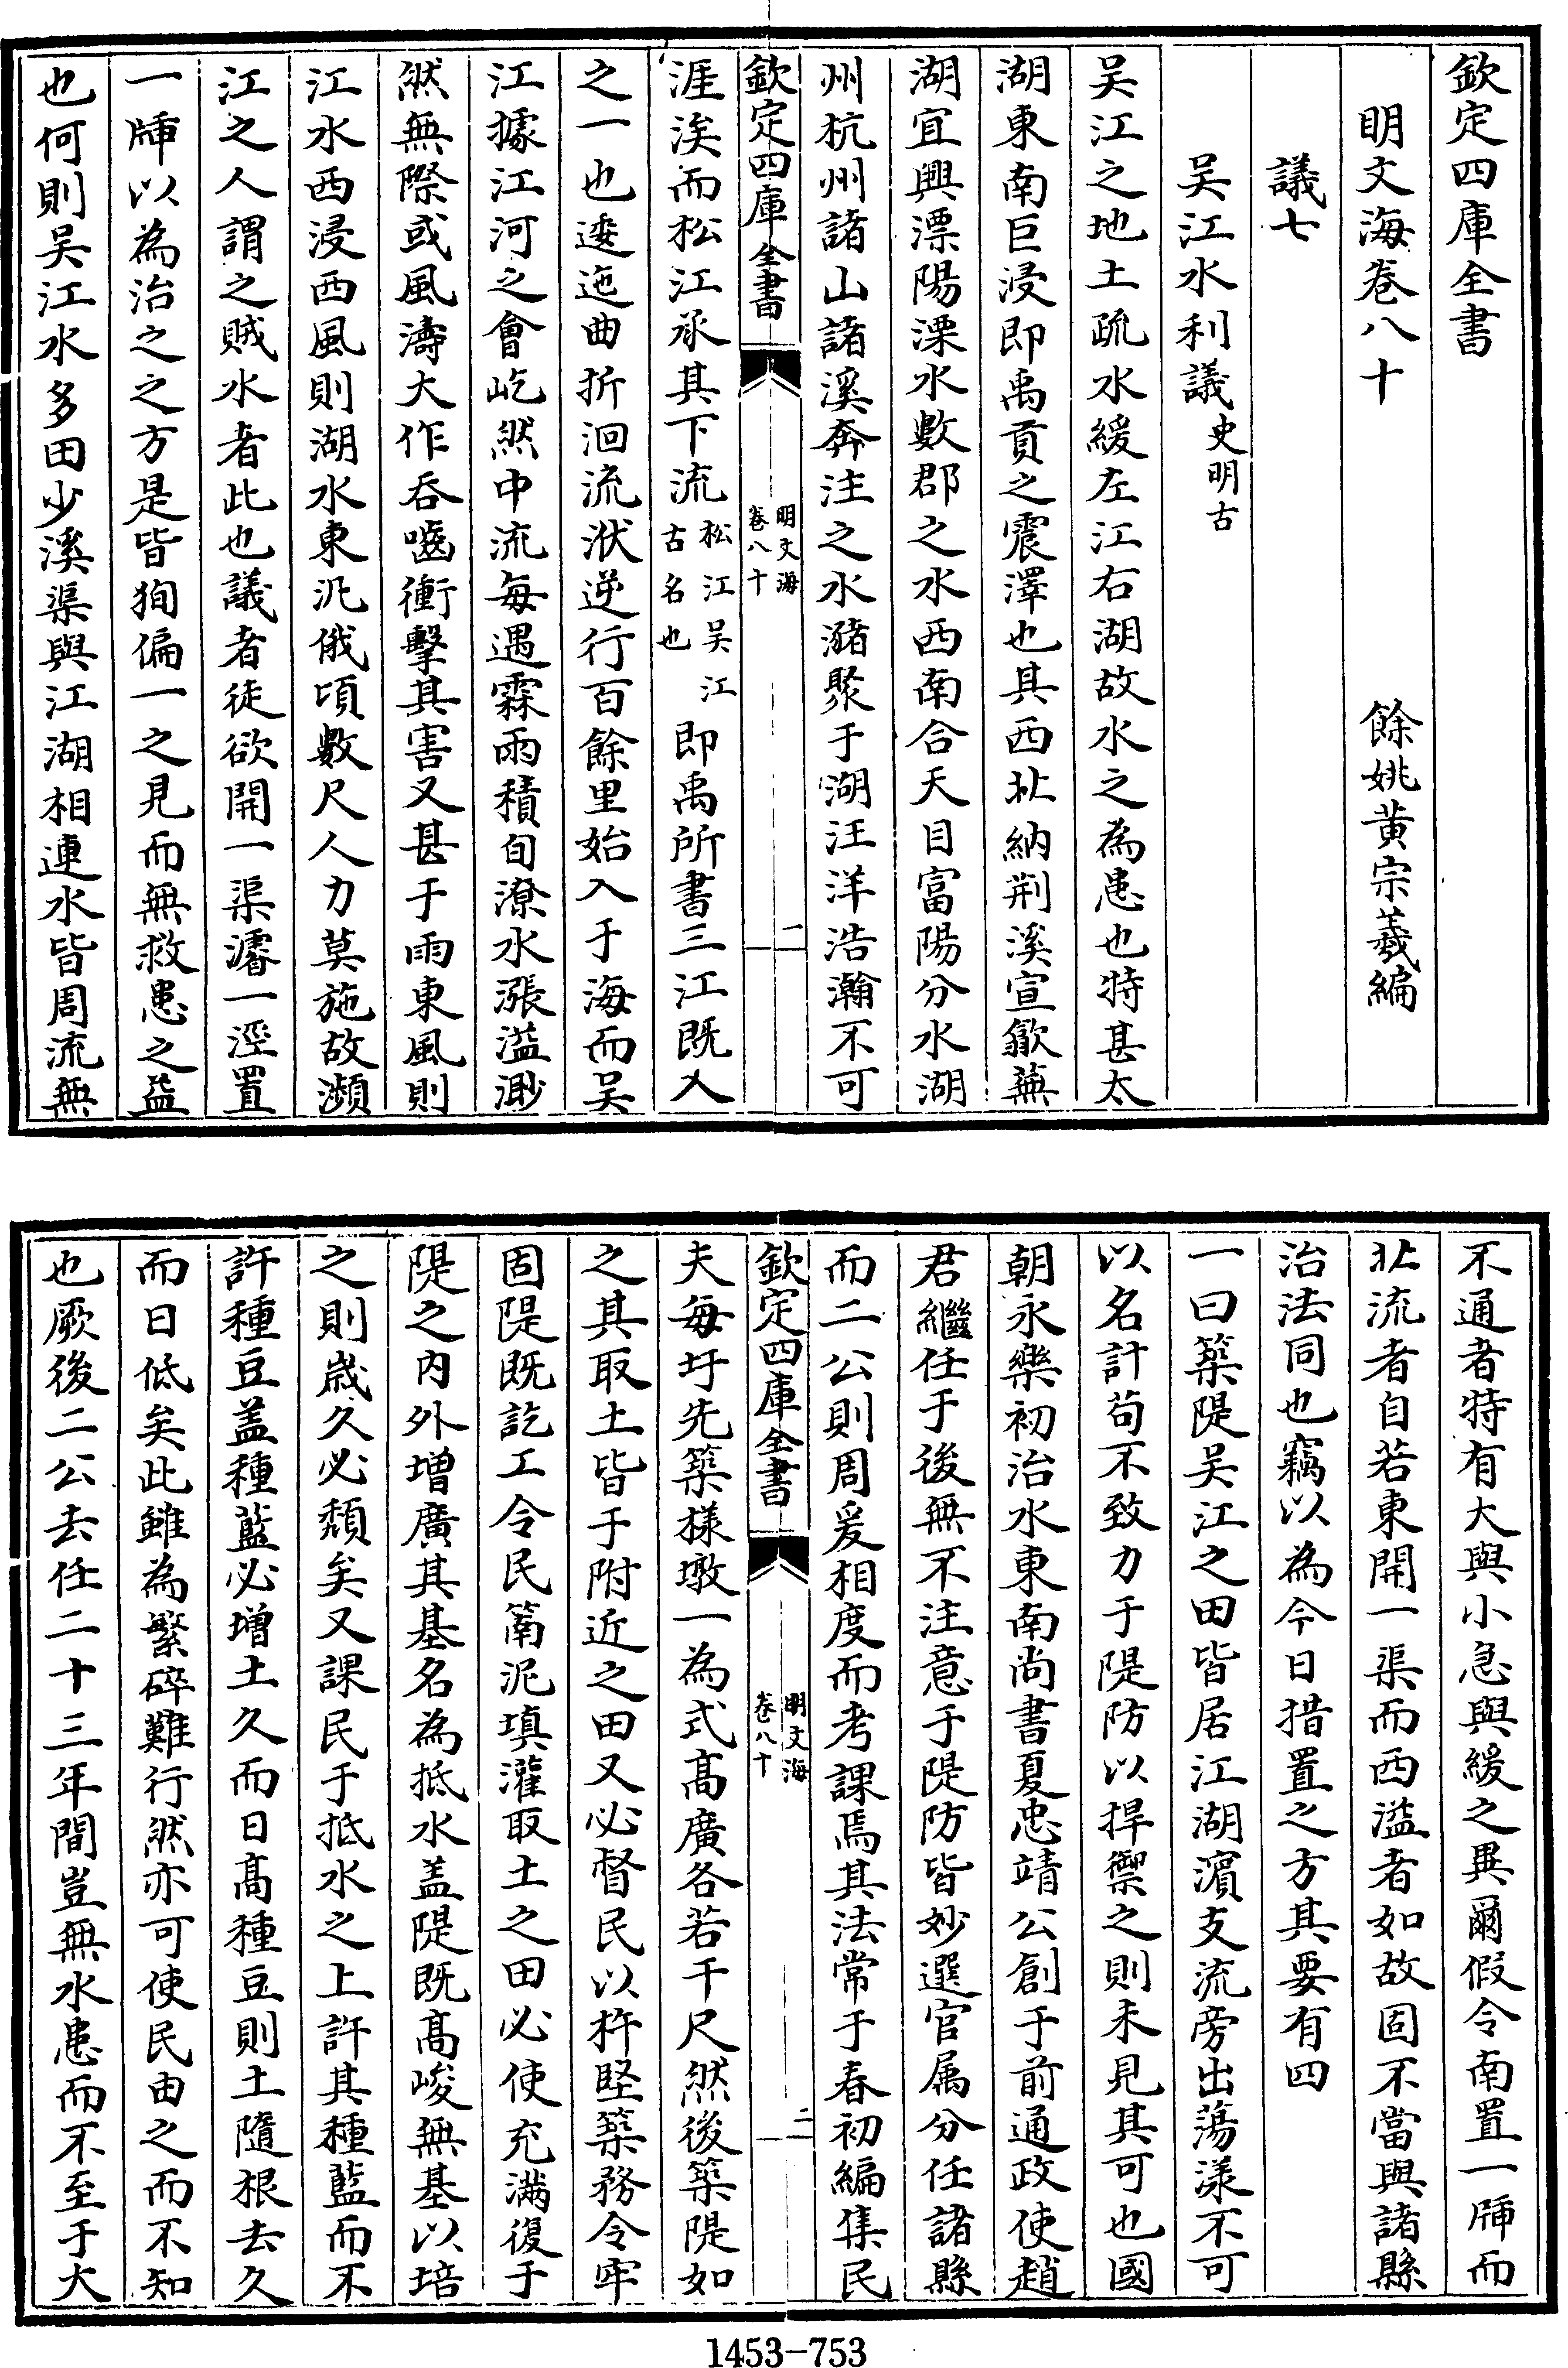 欽定四庫全書
明文海卷八十
餘姚黃宗羲編
議七
吴江水利議史明古
吴江之地土疏水緩左江右湖故水之為患也特甚太
湖東南巨浸即禹貢之震澤也其西北納荆溪宣歙蕪
湖宜興漂陽溧水數郡之水西南合天目富陽分水湖
州杭州諸山諸溪奔注之水瀦聚于湖汪洋浩瀚不可
欽定四庫全書
明文海
卷八十
一
涯涘而松江承其下流松江吴江古名也即禹所書三江既入
之一也逶迤曲折洄流洑逆行百餘里始入于海而吴
江據江河之會屹然中流每遇霖雨積旬潦水漲溢渺
然無際或風濤大作吞嚙衝擊其害又甚于雨東風則
江水西浸西風則湖水東汎俄頃數尺人力莫施故瀕
江之人謂之賊水者此也議者徒欲開一渠濬一涇置
一牐以為治之之方是皆狥偏一之見而無救患之益
也何則吴江水多田少溪渠與江湖相連水皆周流無
不通者特有大與小急與緩之異爾假令南置一牐而
北流者自若東開一渠而西溢者如故固不當與諸縣
治法同也竊以為今日措置之方其要有四
一曰築隄吴江之田皆居江湖濵支流旁出蕩漾不可
以名計苟不致力于隄防以捍禦之則未見其可也國
朝永樂初治水東南尚書夏忠靖公創于前通政使趙
君繼任于後無不注意于隄防皆妙選官属分任諸縣
而二公則周爰相度而考課焉其法常于春初編集民
欽定四庫全書
明文海
卷八十
二
夫每圩先築樣墩一為式髙廣各若干尺然後築隄如
之其取土皆于附近之田又必督民以杵堅築務令牢
固隄既訖工令民罱泥填灌取土之田必使充满復于
隄之内外增廣其基名為抵水盖隄既髙峻無基以培
之則歲久必頽矣又課民于抵水之上許其種藍而不
許種豆盖種藍必增土久而日髙種豆則土隨根去久
而日低矣此雖為繁碎難行然亦可使民由之而不知
也厥後二公去任二十三年間豈無水患而不至于大
1453-753